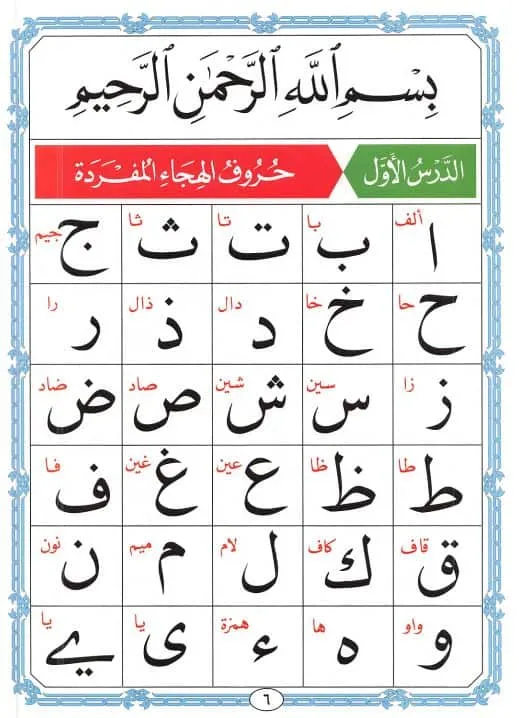 بِسْمِ ٱللَّهِ ٱلرَّحْمَٰنِ ٱلرَّحِيمِ
الدَّرْسُ الأَوَّل حُرُوفُ الهِجَاءِ المُفْرَدَة
ألف با تا ثا جيم
ا ب ت ث ج
حا خا دال ذال را
ح خ د ذ ر
زا سين شين صاد ضاد
ز س ش ص ض
طا ظا عين غين فا
ط ظ ع غ ف
قاف كاف لام ميم نون
ق ك ل م ن
واو ها همزة يا يا
و ه ء ى ے
٦